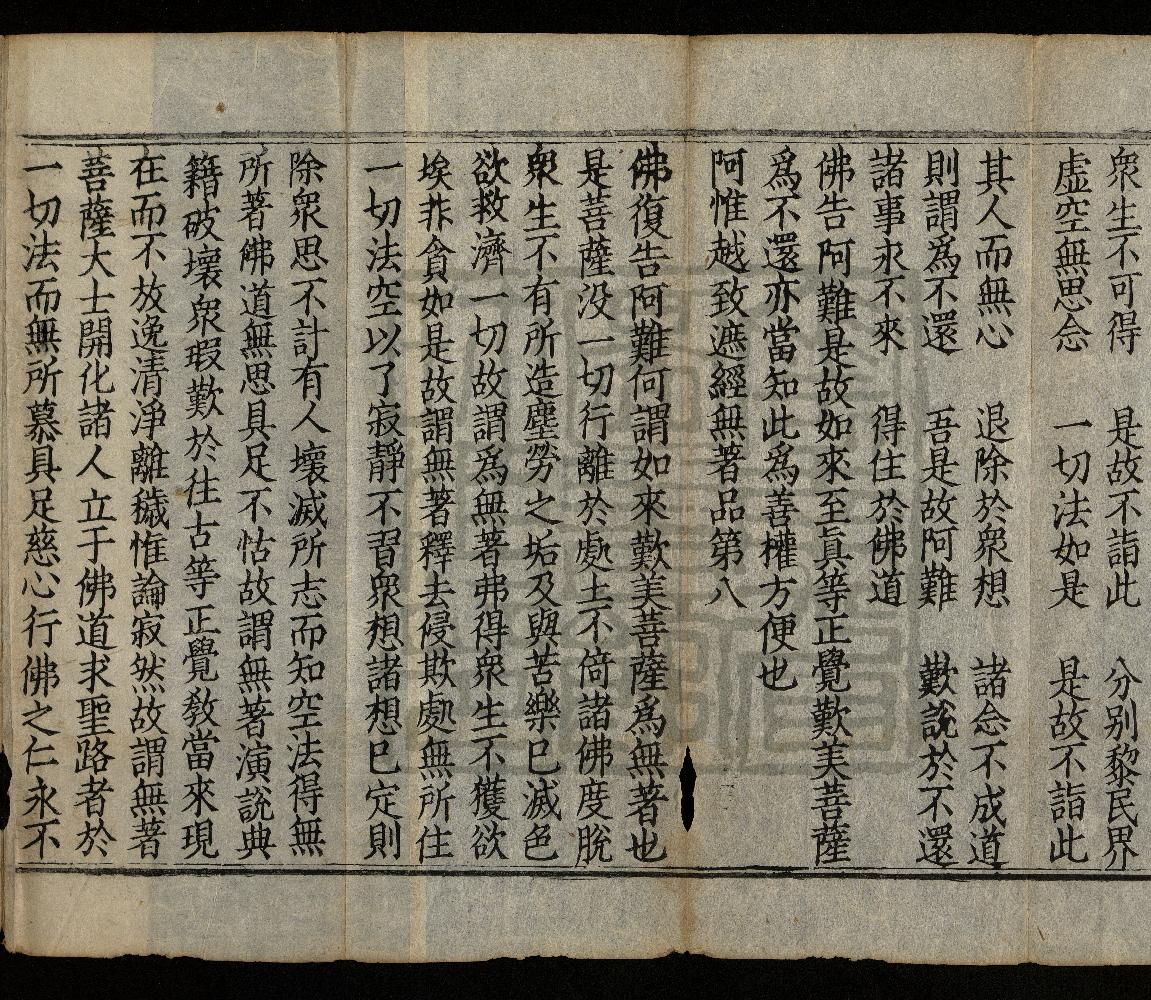 衆生不可得　是故不詣此　分别黎民界
虚空無思念　一切法如是　是故不詣此
其人而無心　退除於衆想　諸念不成道
則謂爲不還　吾是故阿難　歎說於不還
諸事永不來　得住於佛道
佛告阿難是故如來至真等正覺歎美菩薩
爲不還亦當知此爲善權方便也
阿惟越致遮經無著品第八
佛復告阿難何謂如來歎美菩薩爲無著也
是菩薩没一切行離於處土不倚諸佛度脫
衆生不有所造塵勞之垢及與苦樂已滅色
欲救濟一切故謂爲無著弗得衆生不獲欲
埃非貪如是故謂無著釋去侵欺處無所住
一切法空以了寂靜不習衆想諸想已定則
除衆思不計有人壞滅所志而知空法得無
所著佛道無思具足不怙故謂無著演說典
籍破壞衆瑕歎於往古等正覺教當來現
在而不放逸清淨離穢惟論寂然故謂無著
菩薩大士開化諸人立于佛道求聖路者於
一切法而無所慕具足慈心行佛之仁永不